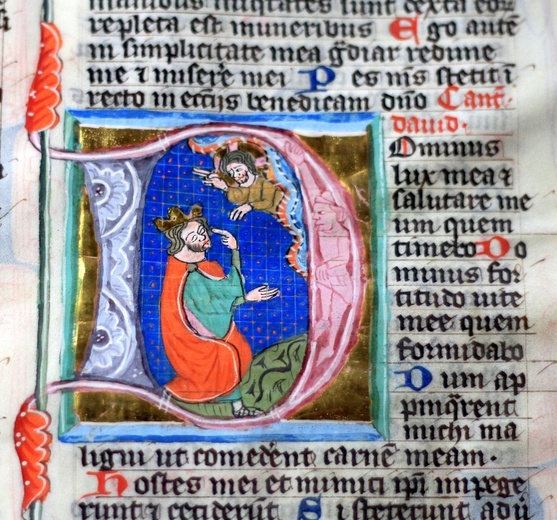 manibus iniquitates sunt dextra eor
repleta est muneribus Ego autē
in simplicitate mea ḡdiar redime
me ⁊ misere mei Pes m̄s stetit ī
recto in eccīis benedicam dn̄o Cant̄.
dauid.
Dominus
lux mea ⁊
salutare me
um quem
timebo Do
minus for
titudo uite
mee quem
formidabo
Dum ap
pinq̄rent
michi ma
ligni ut comedent carnē meam.
Hostes mei et inimici ip̄i impege
runt ⁊ ceciderūt Si steterunt adū